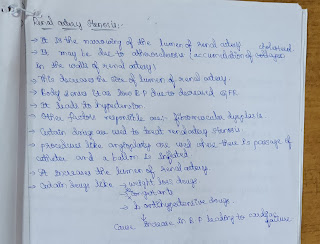 Renal artery Stenosis:-
→ It is the narrowing of the lumen of renal artery
→ It may be due to atherosclerosis (accumulation of
in the walls of renal artery)
→ This decreases the size of lumen of renal artery.
→ Body senses it as low B.P due to decreased GFR
→ It leads to hypertension.
→ Other factors responsible are:- fibromuscular dysplasia
→ Certain drugs are used to treat renal artery stenosis
→ procedures like angioplasty are used where there is passage of
catheter and a ballon is inflated
→ It increase the lumen of renal artery.
→ Certain drugs like → weight loss drugs
→ antihypertensive drugs.
Cause Increase in B.P leading to cardiac
failure